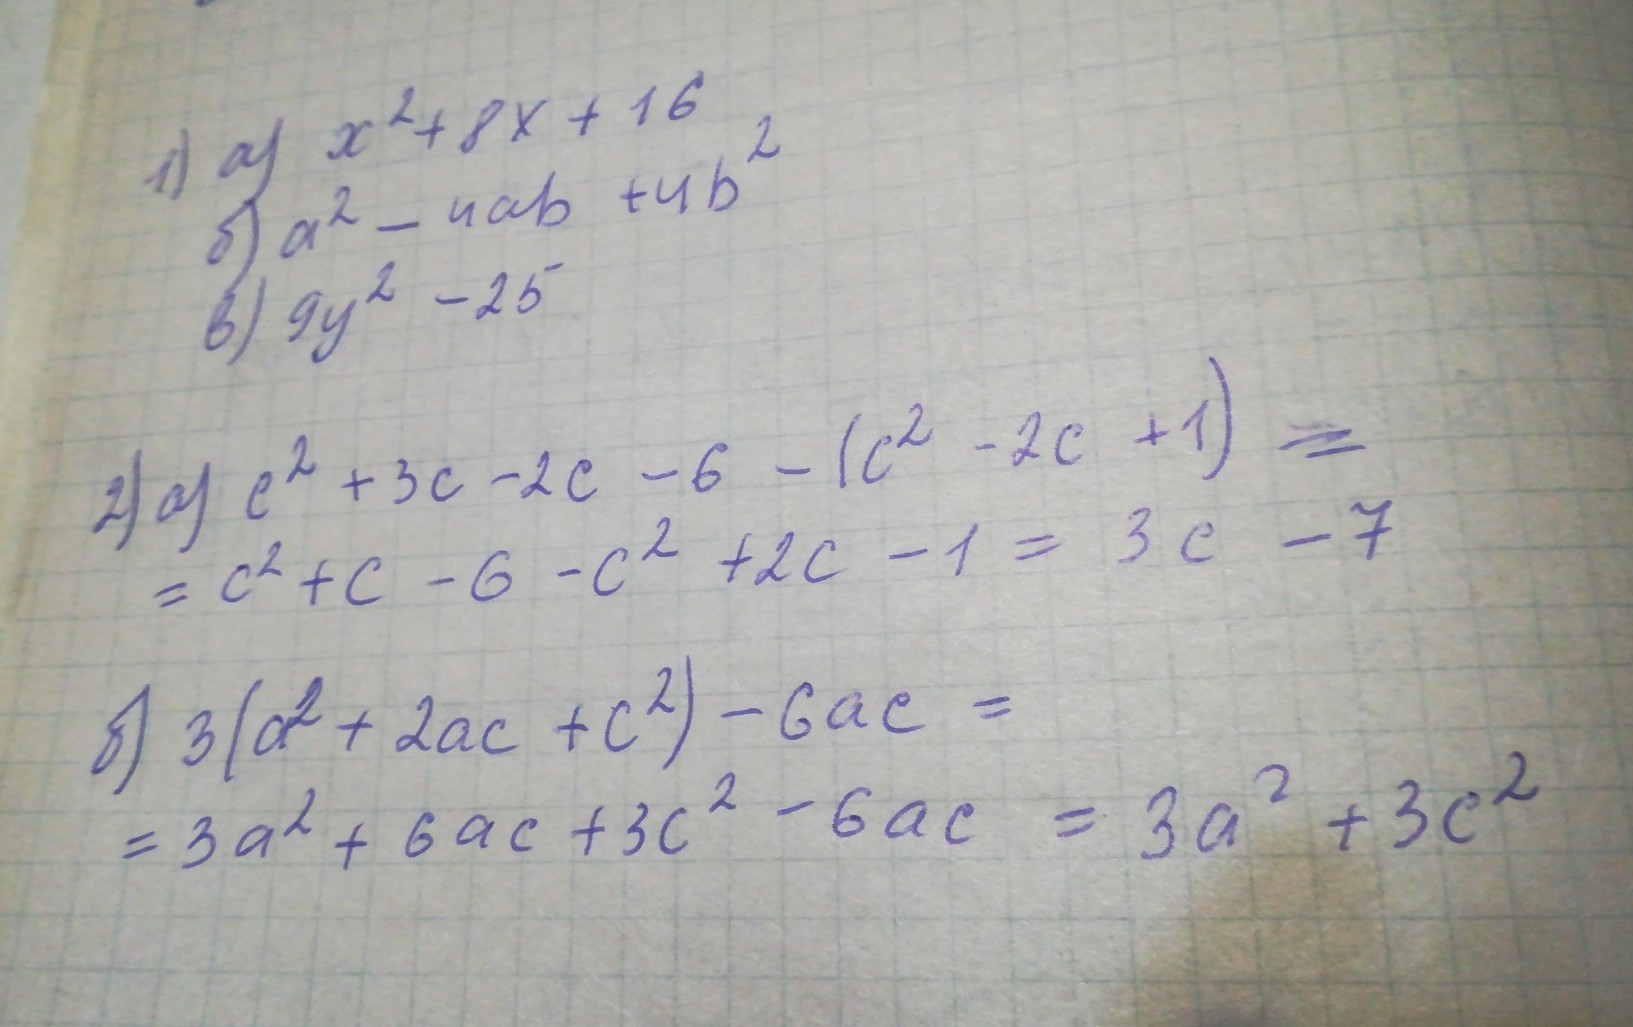 1) а) x² + 8x + 16
б) a² - 4ab + 4b²
в) 9y² - 25
2) а) c² + 3c - 2c - 6 - (c² - 2c + 1) =
= c² + c - 6 - c² + 2c - 1 = 3c - 7
б) 3(a² + 2ac + c²) - 6ac =
= 3a² + 6ac + 3c² - 6ac = 3a² + 3c²